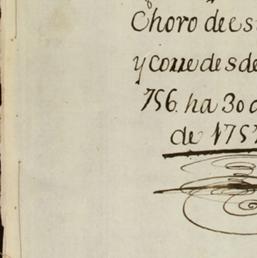 Choro de es
y corre desde
756. ha 30 d
de 175